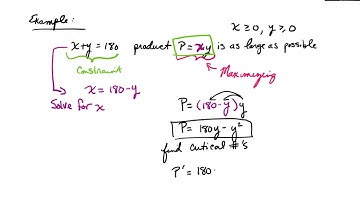 Example:
x ≥ 0, y ≥ 0
x+y = 180 product P = xy is as large as possible
Constraint
Maximizing
x = 180-y
Solve for x
P = (180-y)y
P = 180y - y²
find critical #'s
P' = 180